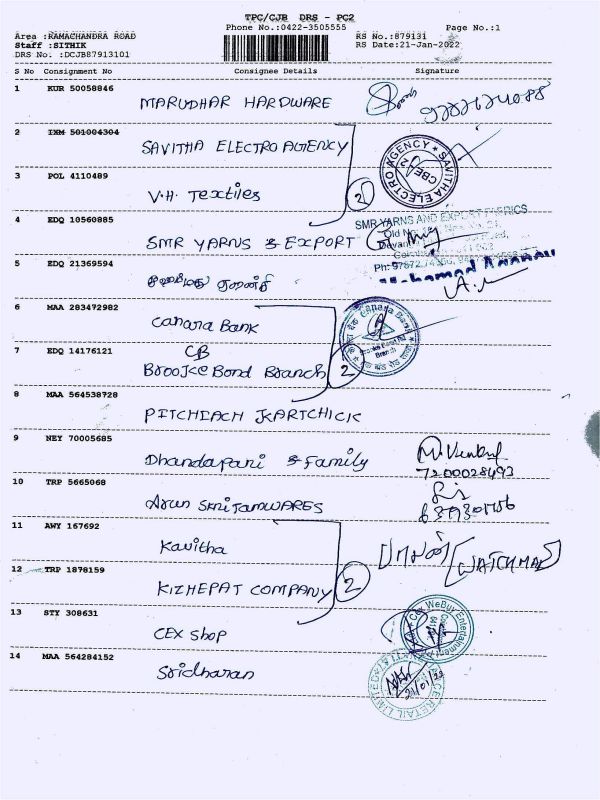 TPC/CJB DRS - PC2
Phone No.:0422-3505555 Page No.:1
Area :RAMACHANDRA ROAD RS No.:879131
Staff :SITHIK RS Date:21-Jan-2022
DRS No. :DCJB87913101
S No Consignment No Consignee Details Signature
1 KUR 50058846 MARUDHAR HARDWARE
2 IXM 501004304 SAVITHA ELECTRO AGENCY
SAVITHA ELECTRO AGENCY CBE
3 POL 4110489 V.H. Textiles 2
4 EDQ 10560885 SMR YARNS & EXPORT
SMR YARNS AND EXPORT FABRICS
5 EDQ 21369594
6 MAA 283472982 Canara Bank
Canara Bank
Branch
7 EDQ 14176121 CB
Brooke Bond Branch 2
8 MAA 564538728 PITCHIACH KARTCHICK
9 NEY 70005685 Dhandapani & Family
7200028493
10 TRP 5665068
11 AWY 167692 Kavitha
WATCHMAN
12 TRP 1878159 KIZHEPAT COMPANY 2
13 STY 308631 CEX Shop
WeBuy Entertainment
14 MAA 564284152 Sridharan
21/01/22
RETAIL LIMITED